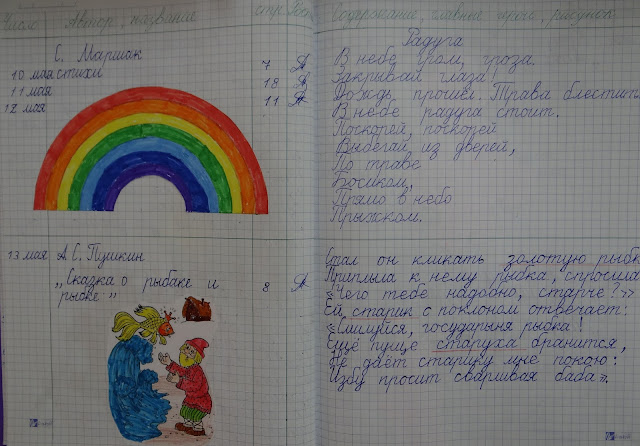 Число Автор, название стр. Содержание, главные герои, рисунок
С. Маршак
10 мая стихи 7
11 мая 18
12 мая 11
Радуга
В небе гром, гроза.
Закрывай глаза!
Дождь прошел. Трава блестит.
В небе радуга стоит.
Поскорей, поскорей
Выбегай из дверей,
По траве
Босиком,
Прямо в небо
Прыжком.
13 мая А. С. Пушкин
„Сказка о рыбаке и рыбке" 8
Стал он кликать золотую рыбк
Приплыла к нему рыбка, спросила
«Чего тебе надобно, старче?»
Ей старик с поклоном отвечает:
«Смилуйся, государыня рыбка!
Ещё пуще старуха бранится,
Не даёт старику мне покою:
Избу просит сварливая баба».